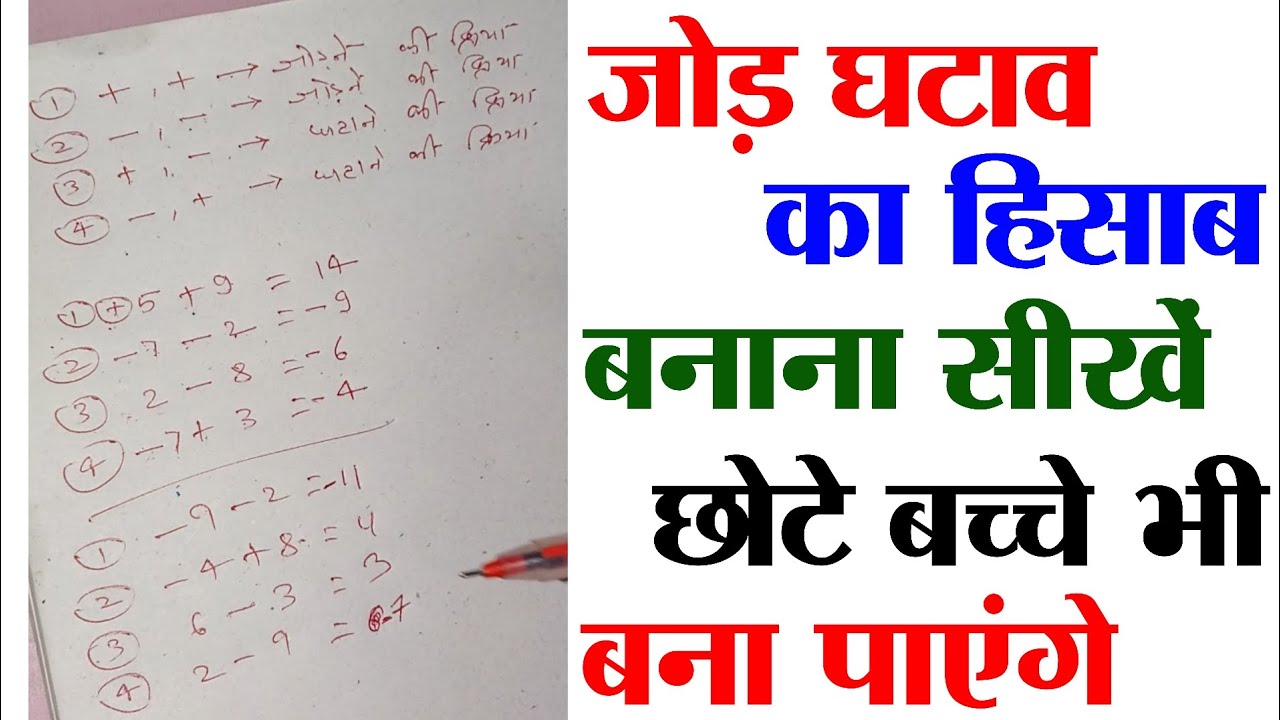 ① + , + → जोड़ने की क्रिया
② - , - → जोड़ने की क्रिया
③ + , - → घटाने की क्रिया
④ - , + → घटाने की क्रिया
① +5 + 9 = 14
② -7 - 2 = -9
③ 2 - 8 = -6
④ -7 + 3 = -4
① -9 - 2 = -11
② -4 + 8 = 4
③ 6 - 3 = 3
④ 2 - 9 = -7
जोड़ घटाव
का हिसाब
बनाना सीखें
छोटे बच्चे भी
बना पाएंगे